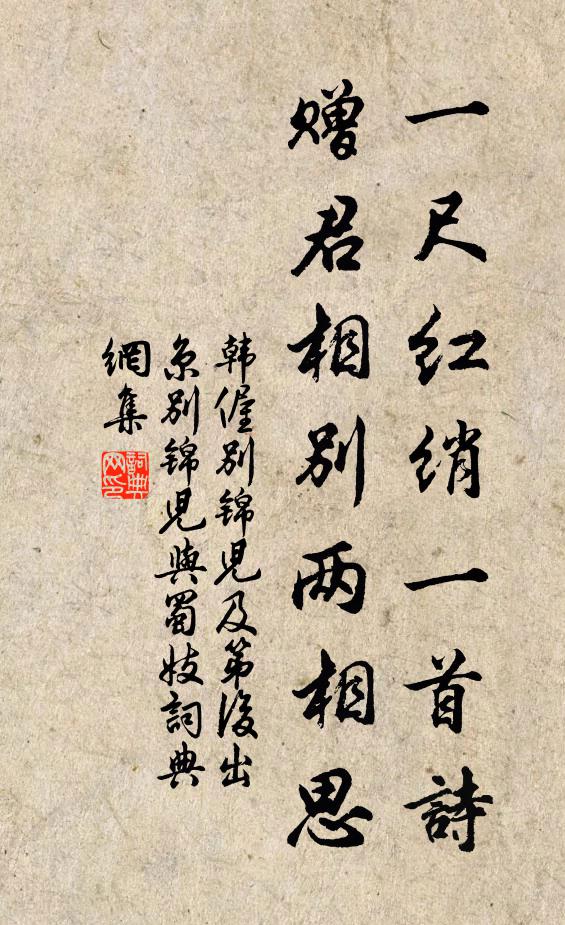 一尺红绡一首詩
赠君相别两相思
韩偓别锦児及第後出
京别锦児與蜀妓詞典
網集
詞典网印